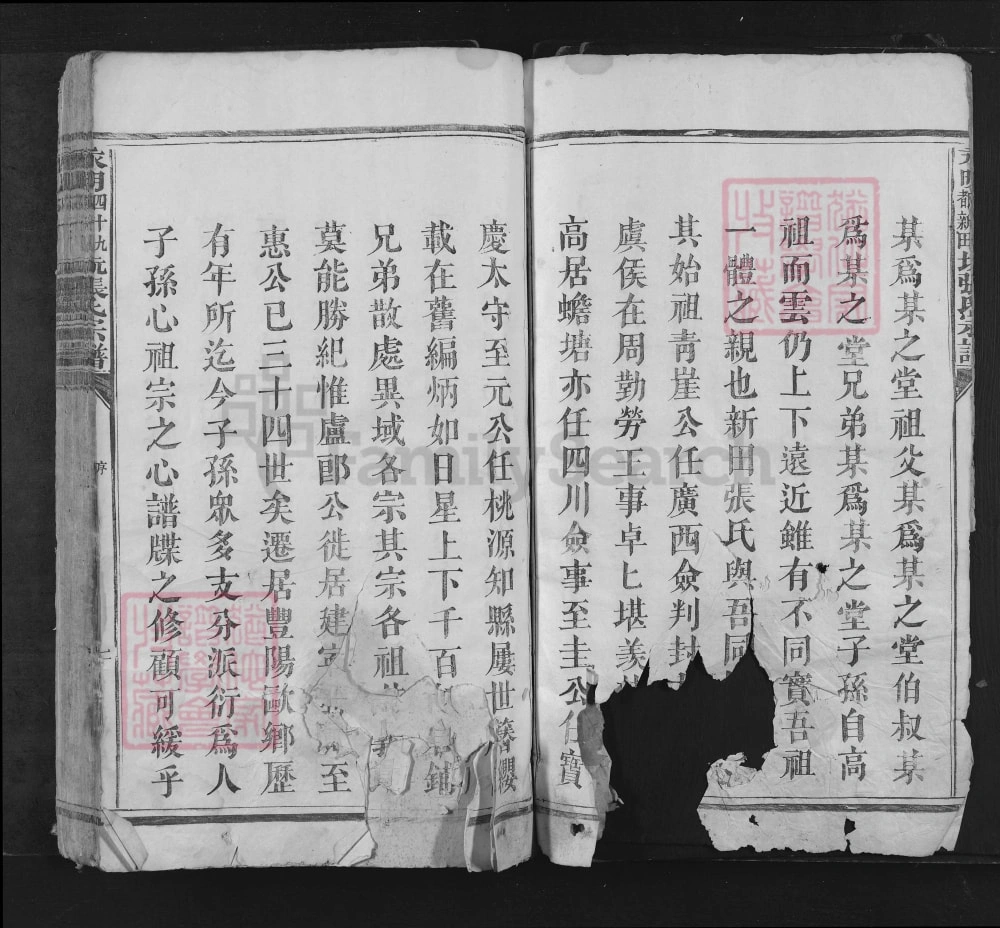 某爲某之堂祖父某爲某之堂伯叔某
爲某之堂兄弟某爲某之堂子孫自高
祖而雲仍上下遠近雖有不同實吾祖
一體之親也新田張氏與吾同
其始祖青崖公任廣西僉判封
虞侯在周勤勞王事卓匕堪羡
高居蟾塘亦任四川僉事至圭公任寶
慶太守至元公任桃源知縣屢世簪纓
載在舊編炳如日星上下千百
兄弟散處異域各宗其宗各祖
莫能勝紀惟盧郎公徙居建 至
惠公已三十四世矣遷居豐陽歐鄉歷
有年所迄今子孫眾多支分派衍爲人
子孫心祖宗之心譜牒之修顧可緩乎
四十九 張氏宗譜
都新田 張氏宗譜
FamilySearch